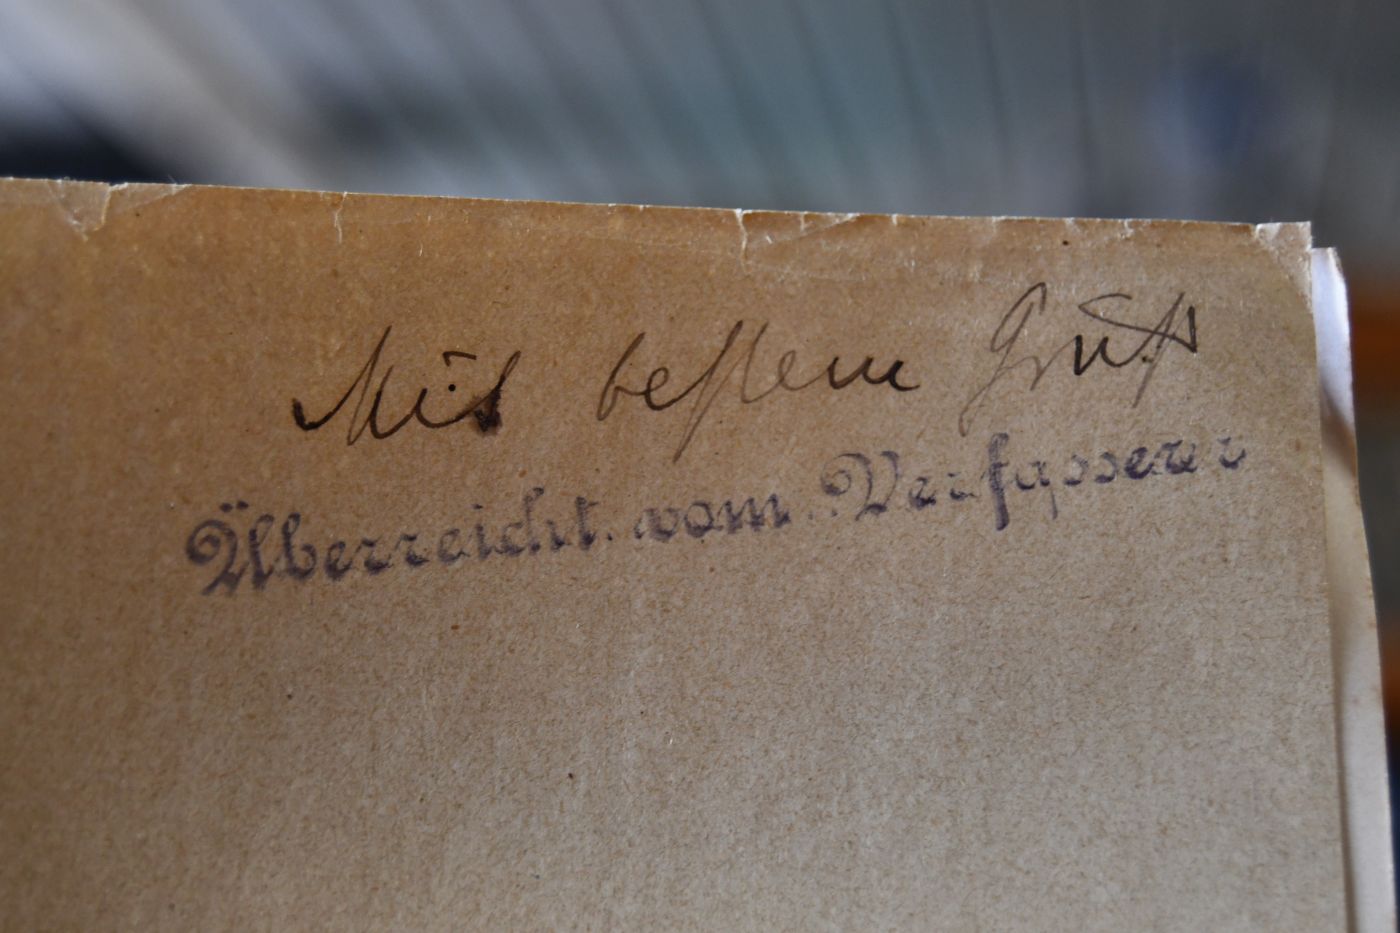 Mit bestem Gruß
Überreicht vom Verfasser